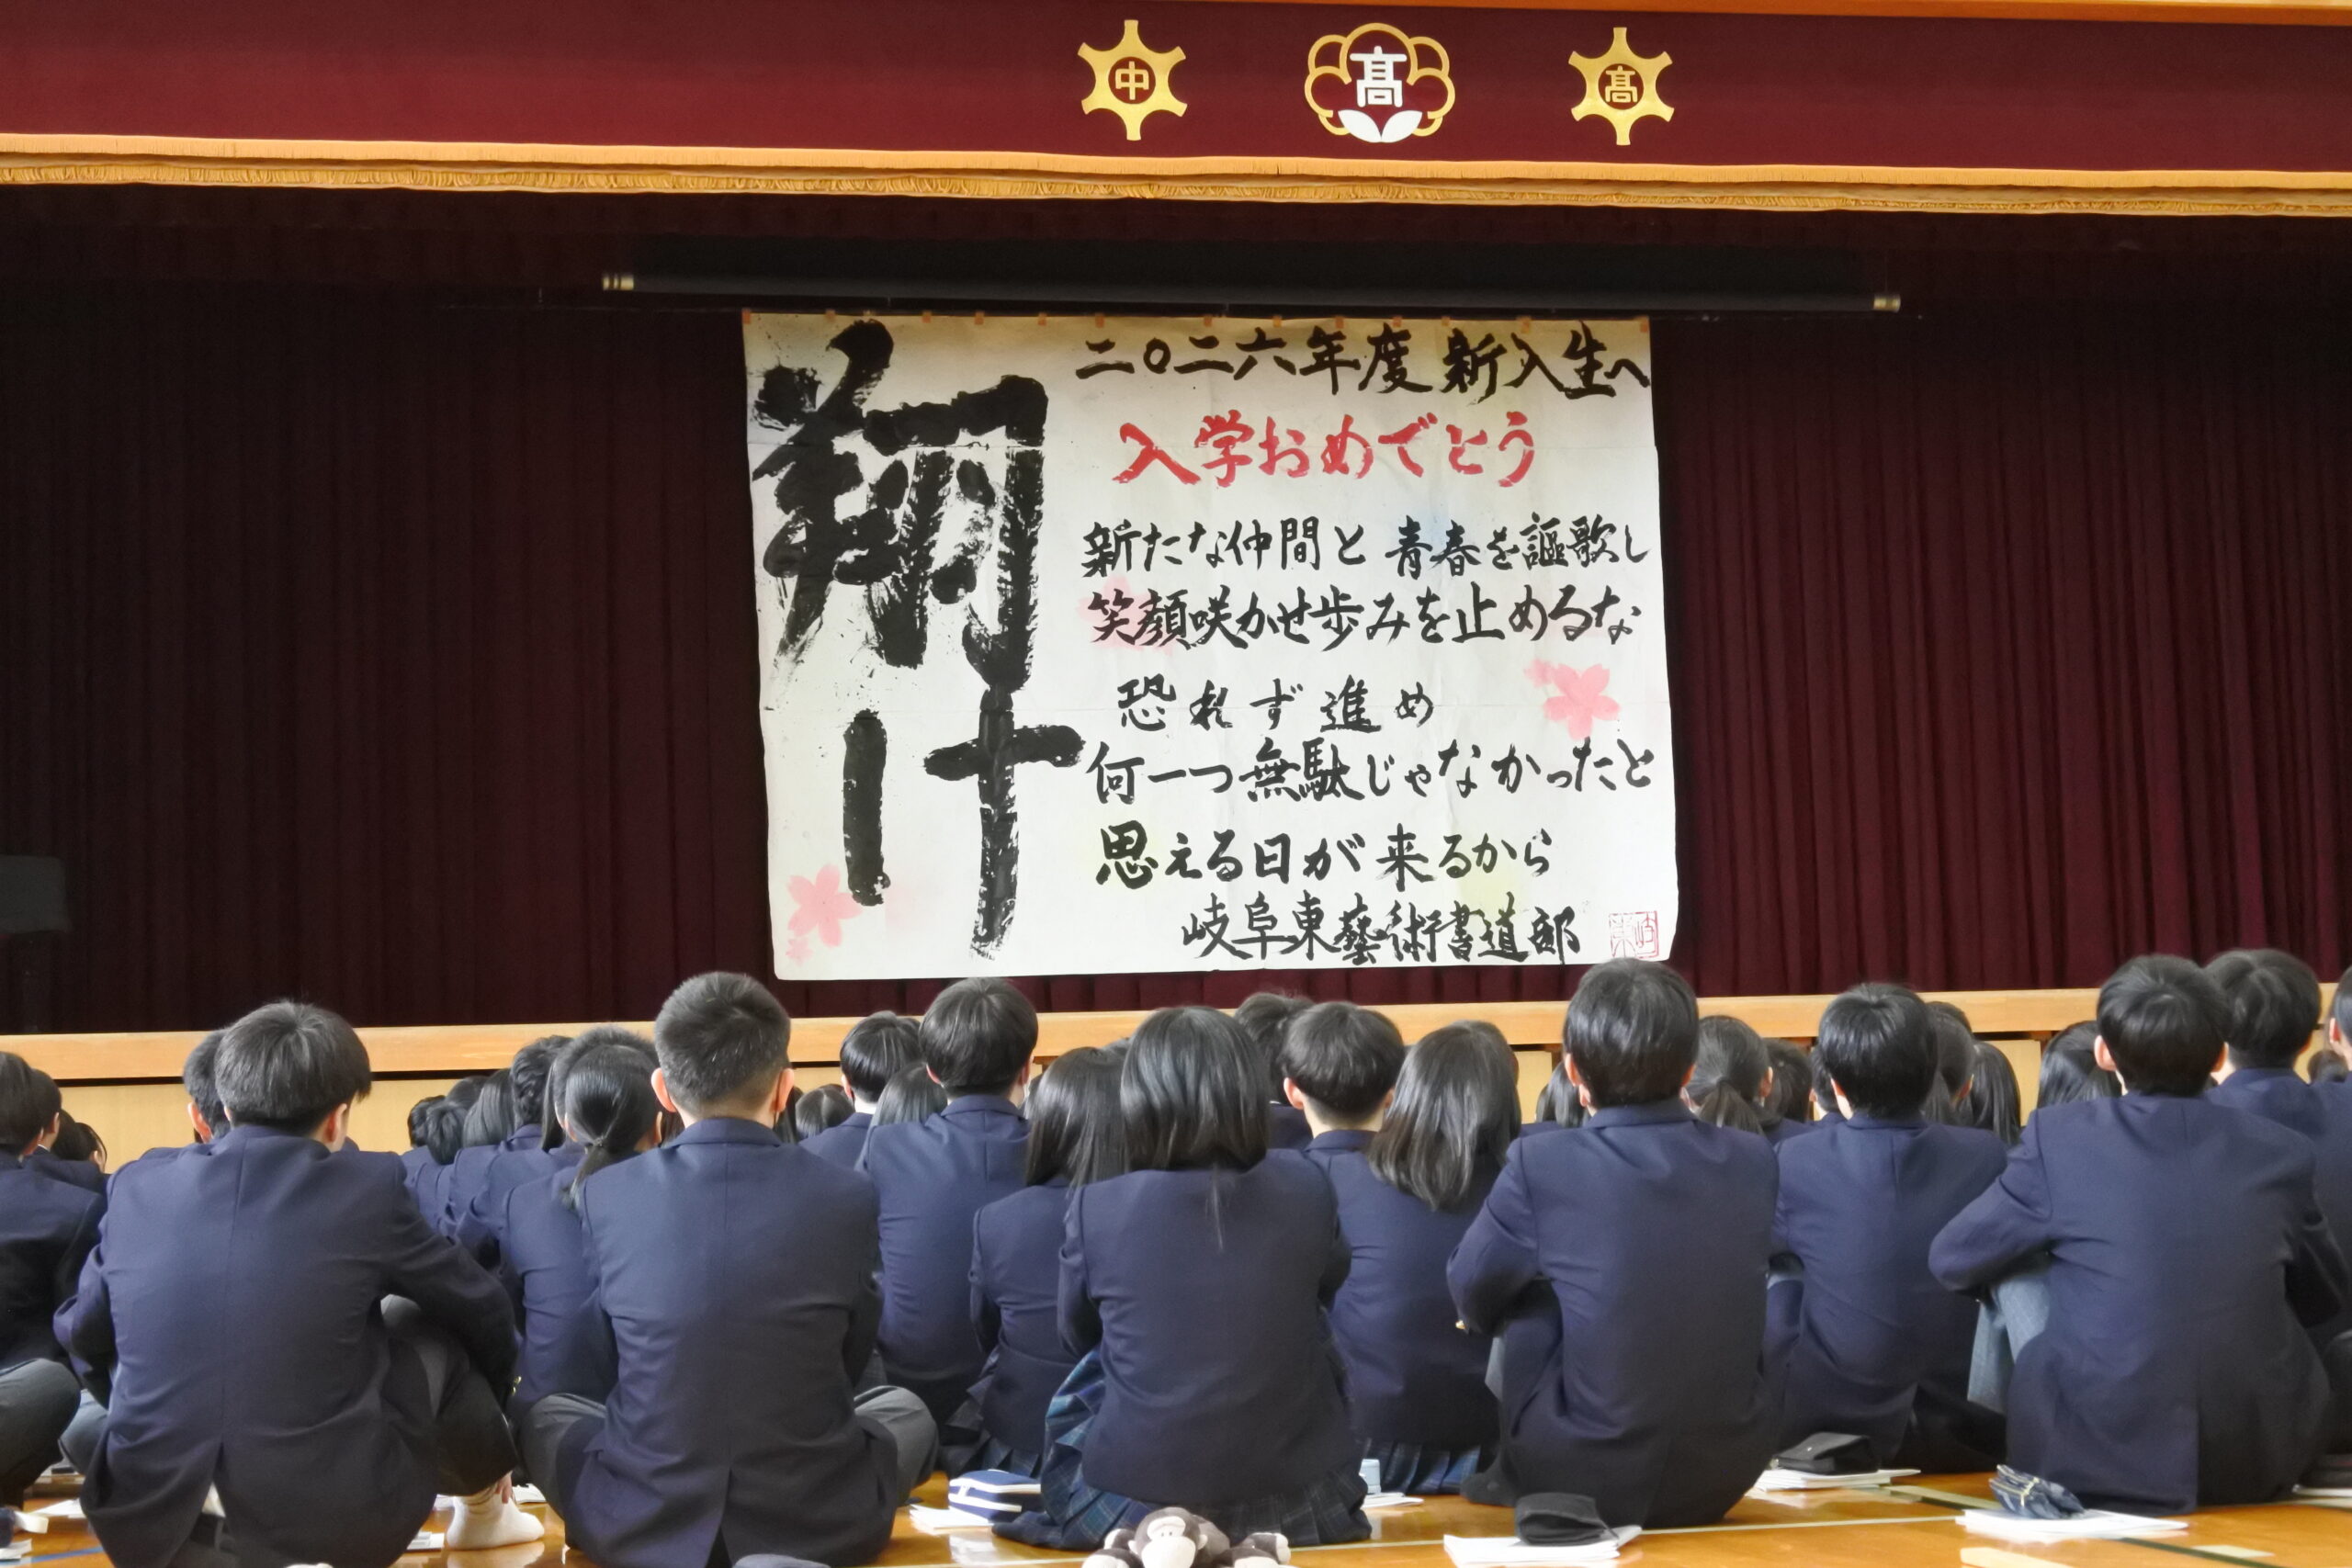 中 高 高
翔け
二〇二六年度 新入生へ
入学おめでとう
新たな仲間と 青春を謳歌し
笑顔咲かせ歩みを止めるな
恐れず進め
何一つ無駄じゃなかったと
思える日が来るから
岐阜東藝術書道部
岐東